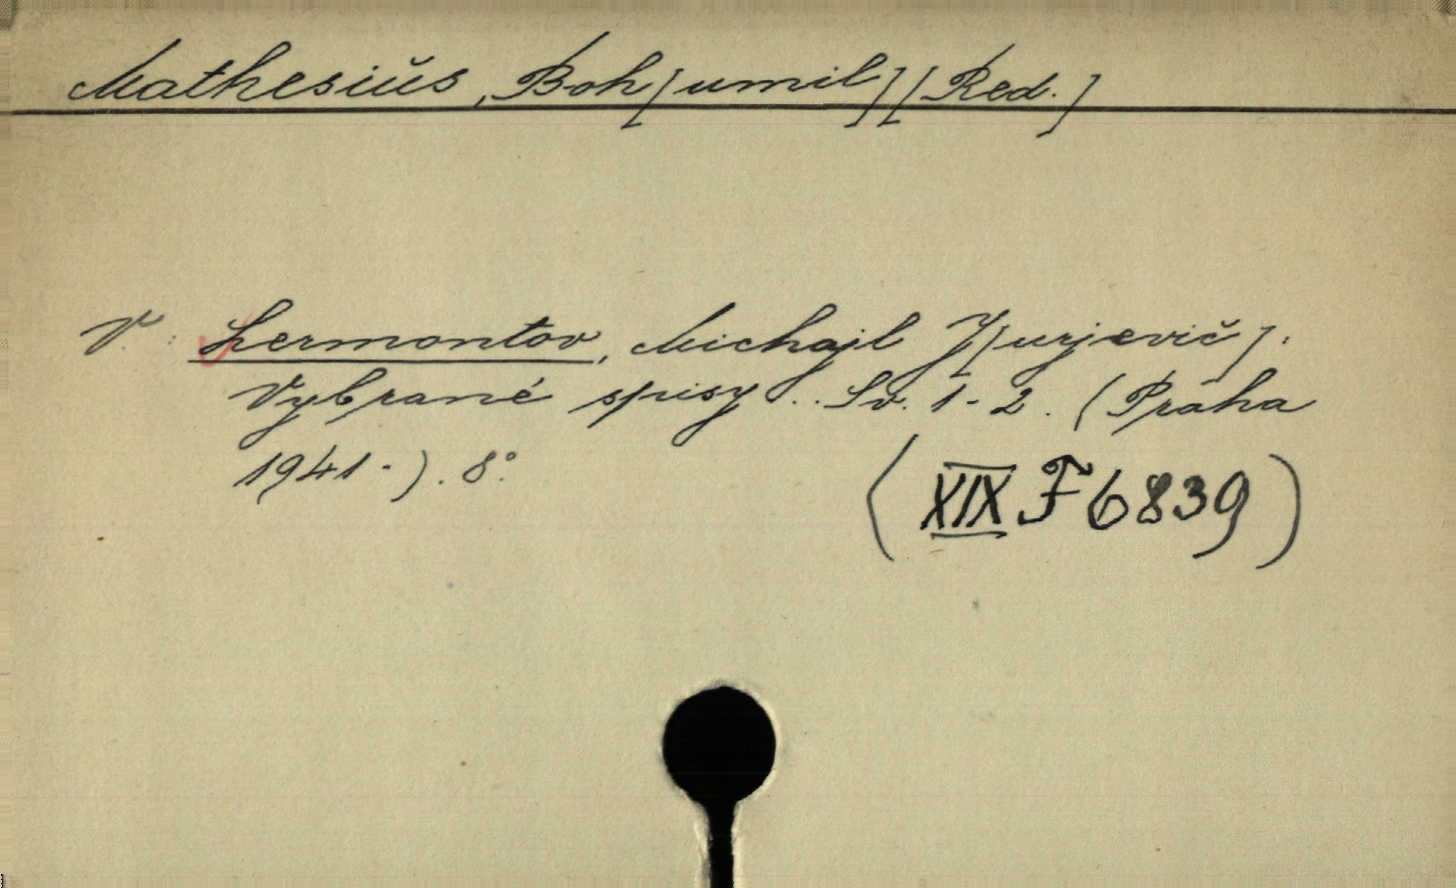 Mathesiŭs, Boh[umil] [Red.]
V. Lermontov, Michajl J[urjevič].
Vybrané spisy.. Sv. 1-2. (Praha
1941-). 8°.
(XIX F 6839)